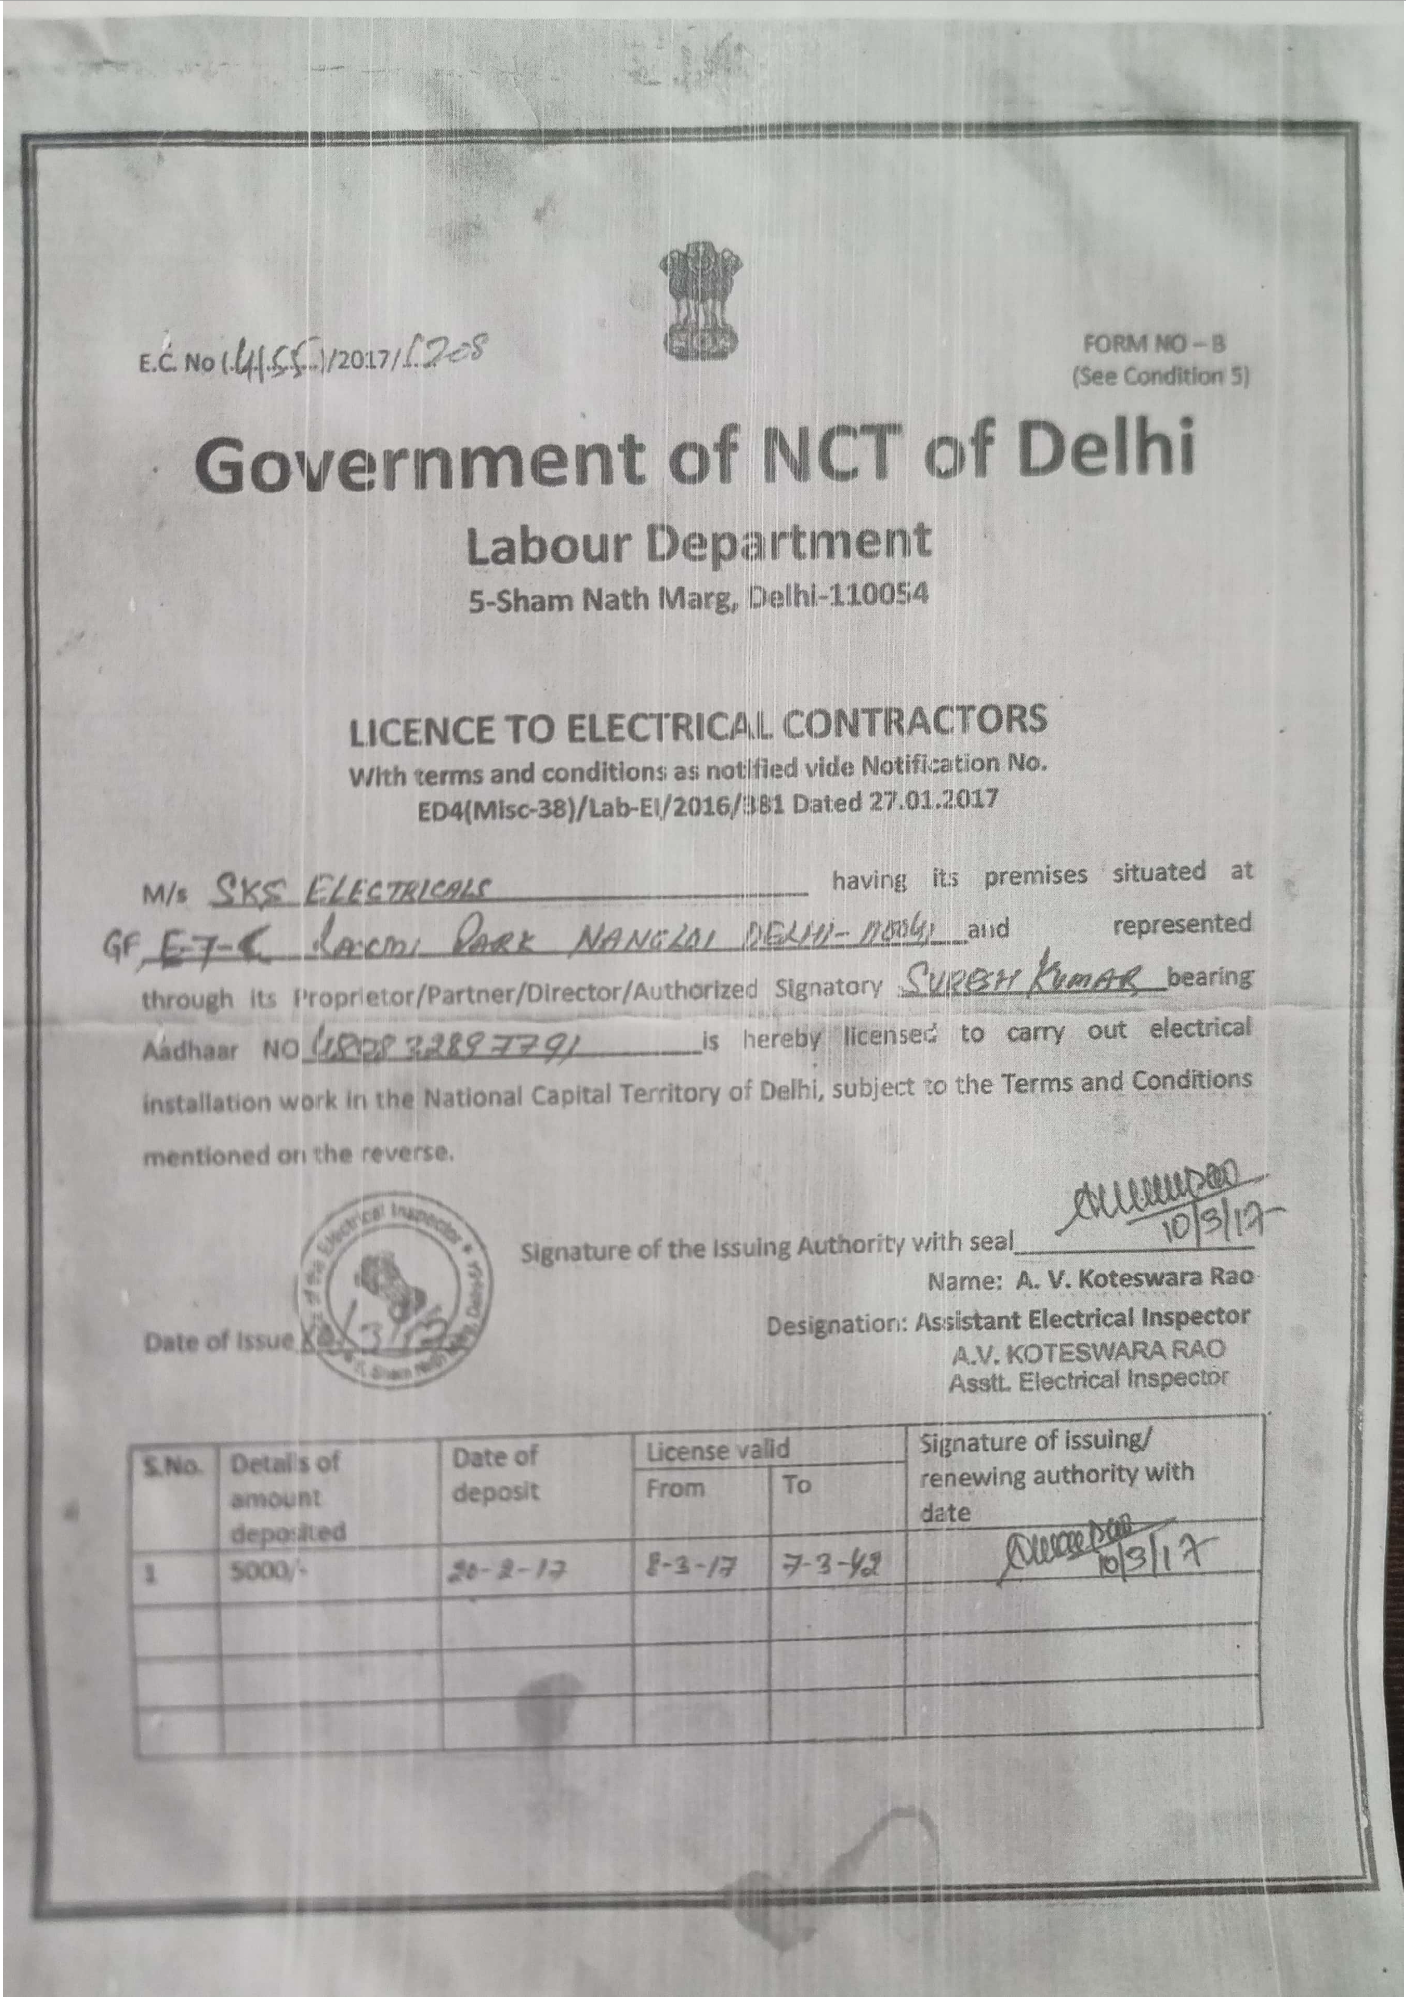 E.C. No (.4155.)/2017/1208
FORM NO – B
(See Condition 5)
Government of NCT of Delhi
Labour Department
5-Sham Nath Marg, Delhi-110054
LICENCE TO ELECTRICAL CONTRACTORS
With terms and conditions as notified vide Notification No.
ED4(Misc-38)/Lab-EI/2016/381 Dated 27.01.2017
M/s SKS ELECTRICALS having its premises situated at
GF, E-7-C Laxmi PARK NANGLOI DELHI-110041 and represented
through its Proprietor/Partner/Director/Authorized Signatory SURESH KUMAR bearing
Aadhaar NO is hereby licensed to carry out electrical
installation work in the National Capital Territory of Delhi, subject to the Terms and Conditions
mentioned on the reverse.
10/3/17
Signature of the Issuing Authority with seal
Name: A. V. Koteswara Rao
Electrical Inspector
Designation: Assistant Electrical Inspector
Date of Issue
A.V. KOTESWARA RAO
Asstt. Electrical Inspector
S.No. Details of amount deposited Date of deposit License valid From To Signature of issuing/ renewing authority with date
1 5000/- 20-2-17 8-3-17 7-3-42 10/3/17